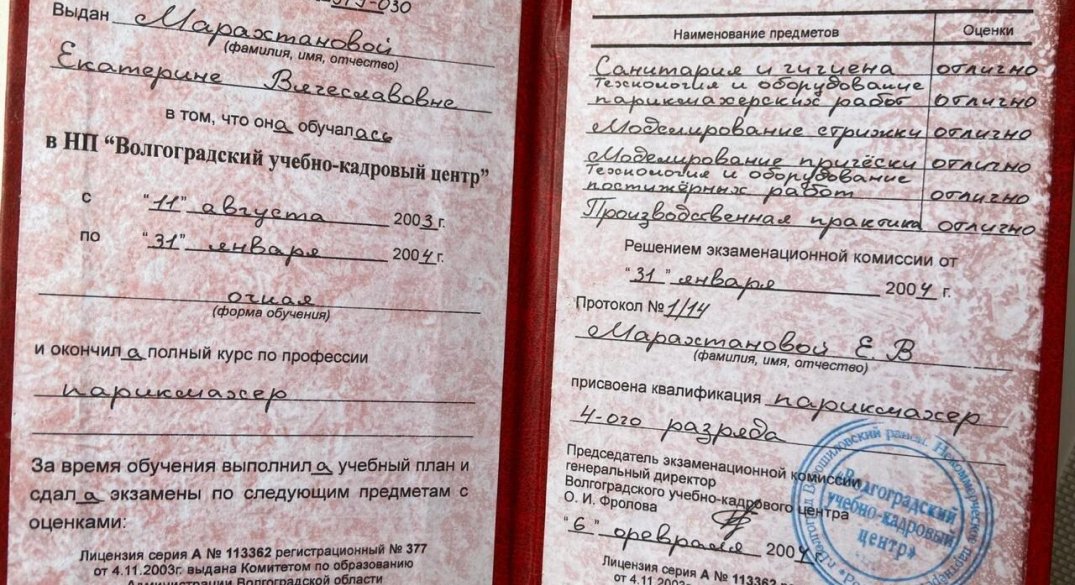 -030
Выдан Марахтановой
(фамилия, имя, отчество)
Екатерине Вячеславовне
в том, что она обучалась
в НП “Волгоградский учебно-кадровый центр”
с “11” августа 2003 г.
по “31” января 2004 г.
очная
(форма обучения)
и окончила полный курс по профессии
парикмахер
За время обучения выполнила учебный план и
сдала экзамены по следующим предметам с
оценками:
Лицензия серия А № 113362 регистрационный № 377
от 4.11.2003г. выдана Комитетом по образованию
Администрации Волгоградской области
Наименование предметов Оценки
Санитария и гигиена отлично
Технология и оборудование
парикмахерских работ отлично
Моделирование стрижки отлично
Моделирование причёски отлично
Технология и оборудование
постижёрных работ отлично
Производственная практика отлично
Решением экзаменационной комиссии от
“31” января 2004 г.
Протокол № 1/14
Марахтановой Е. В
(фамилия, имя, отчество)
присвоена квалификация парикмахер
4-ого разряда
Председатель экзаменационной комиссии
генеральный директор
Волгоградского учебно-кадрового центра
О. И. Фролова
“6” февраля 2004 г.
Лицензия серия А № 113362
от 4.11.2003г. выдана
«Волгоградский
учебно-кадровый
центр»